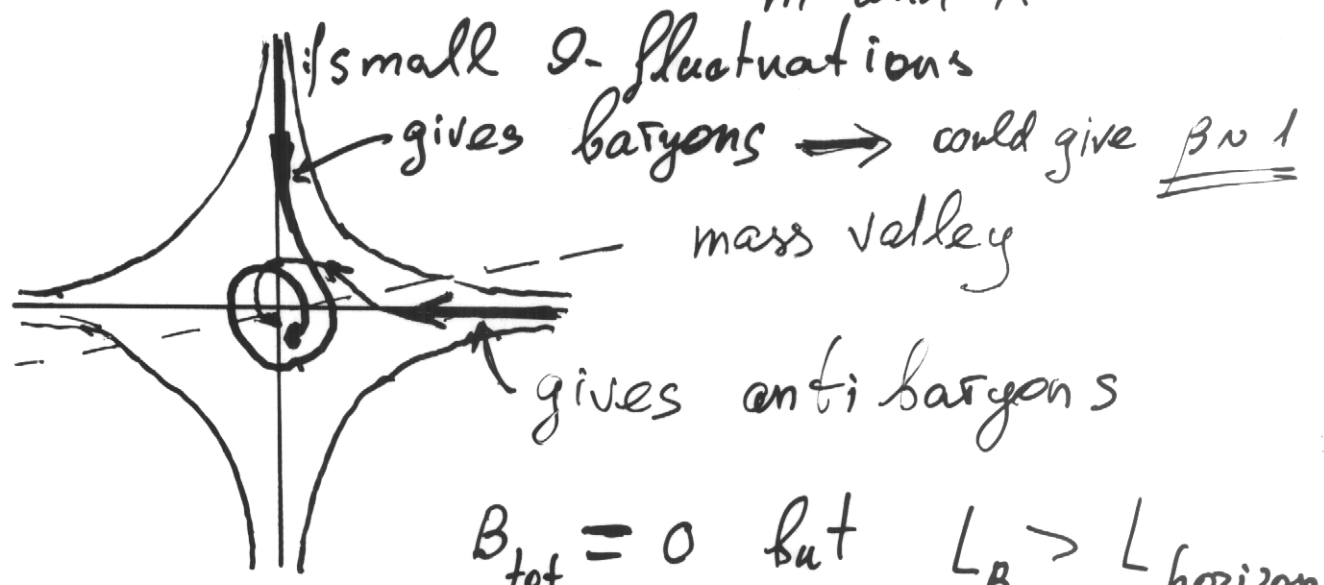 small θ-fluctuations
gives baryons → could give β ~ 1
mass valley
gives antibaryons
B_tot = 0 but L_B > L_horizon